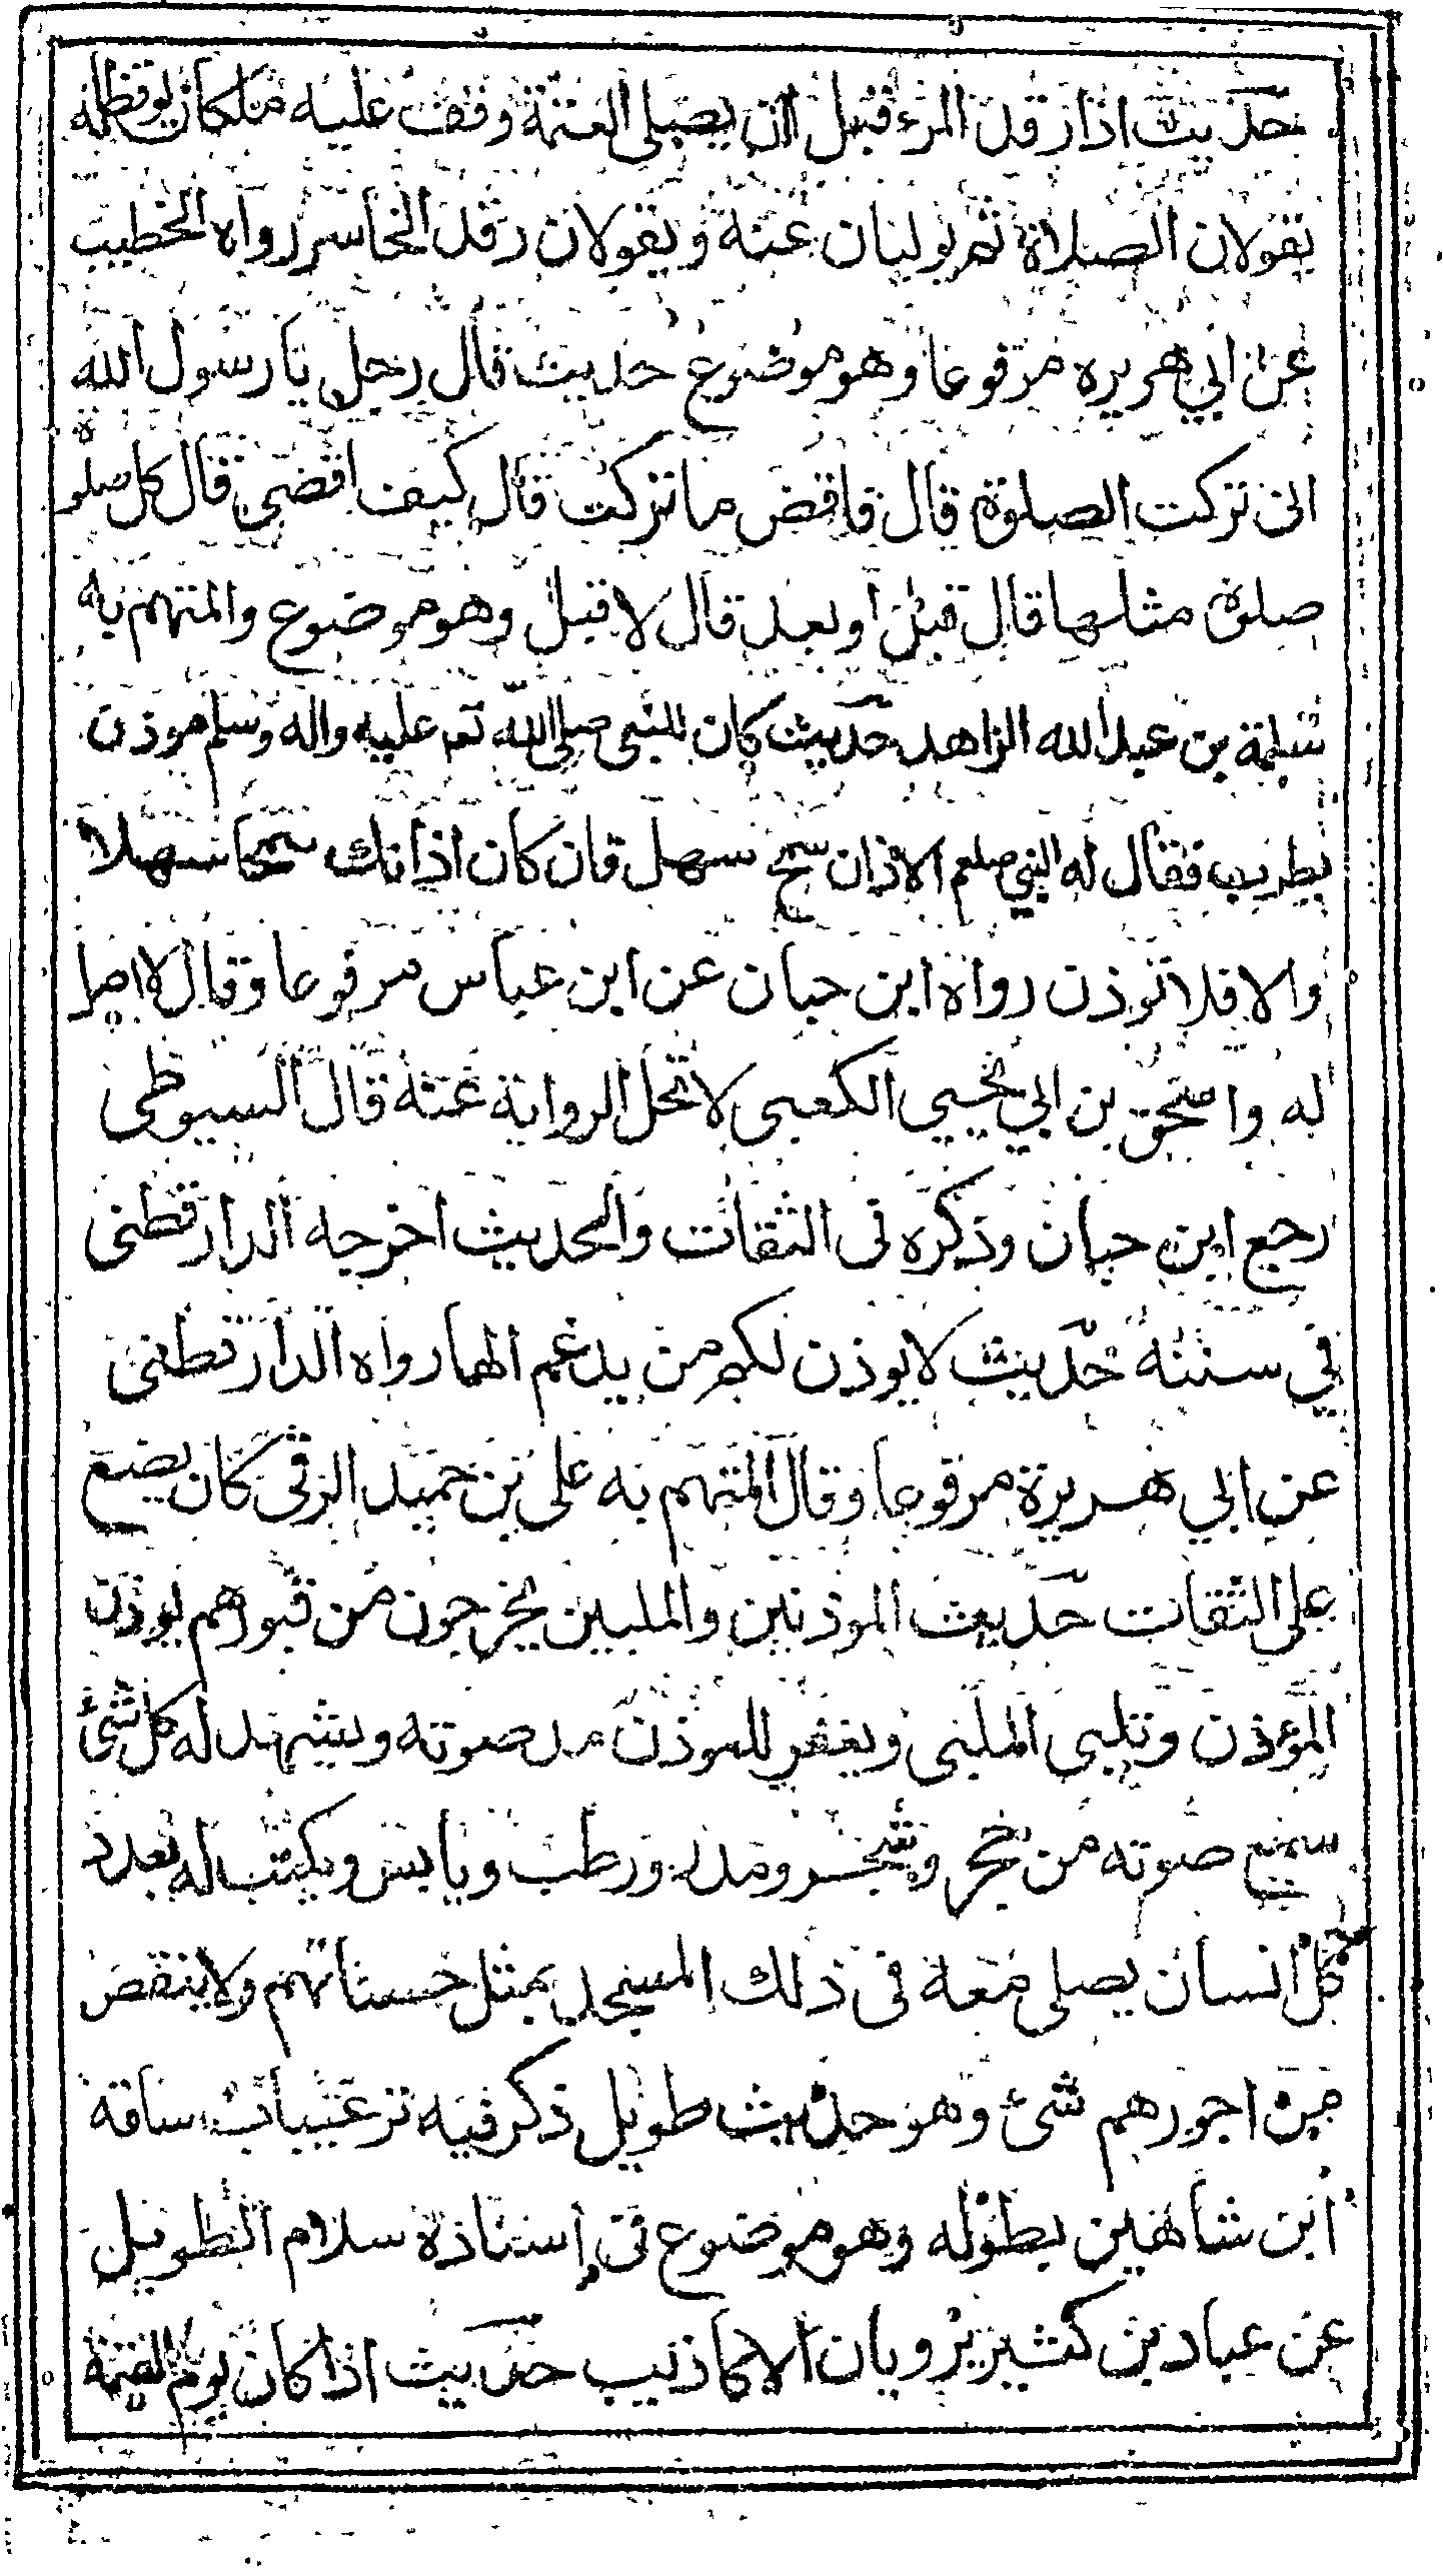 حديث اذا رقد المرء قبل ان يصلى العتمة وقف عليه ملكان يوقظانه
يقولان الصلاة ثم يوليان عنه ويقولان رقد الخاسر رواه الخطيب
عن ابي هريره مرفوعا وهو موضوع حديث قال رجل يا رسول الله
انى تركت الصلوة قال فاقض ما تركت قال كيف اقضى قال كل صلوة
صلوة مثلها قال قبل او بعد قال لا قبل وهو موضوع والمتهم به
سلمة بن عبد الله الزاهد حديث كان للنبى صلى الله تع عليه واله وسلم موذن
يطرب فقال له النبي صلعم الاذان سمح سهل فان كان اذانك سمحا سهلا
والا فلا توذن رواه ابن حبان عن ابن عباس مرفوعا وقال لا اصل
له واسحق بن ابي يحيي الكعبى لا تحل الرواية عنه قال السيوطى
رجع ابن حبان وذكره فى الثقات والحديث اخرجه الدارقطنى
في سننه حديث لا يوذن لكم من يدغم الها رواه الدارقطنى
عن ابي هريرة مرفوعا وقال المتهم به على بن حميد الزقى كان يضع
على الثقات حديث الموذنين والملبين يخرجون من قبورهم يوذن
المؤذن وتلبى الملبى ويغفر للموذن مد صوته ويشهد له كل شئ
سمع صوته من حجر وشجر ومدر ورطب ويابس ويكتب له بعدد
كل انسان يصلى معه فى ذلك المسجد بمثل حسناتهم ولا ينقص
من اجورهم شئ وهو حديث طويل ذكر فيه ترغيبات ساقه
ابن شاهين بطوله وهو موضوع فى إسناده سلام الطويل
عن عباد بن كثير يرويان الاكاذيب حديث اذا كان يوم القيمة